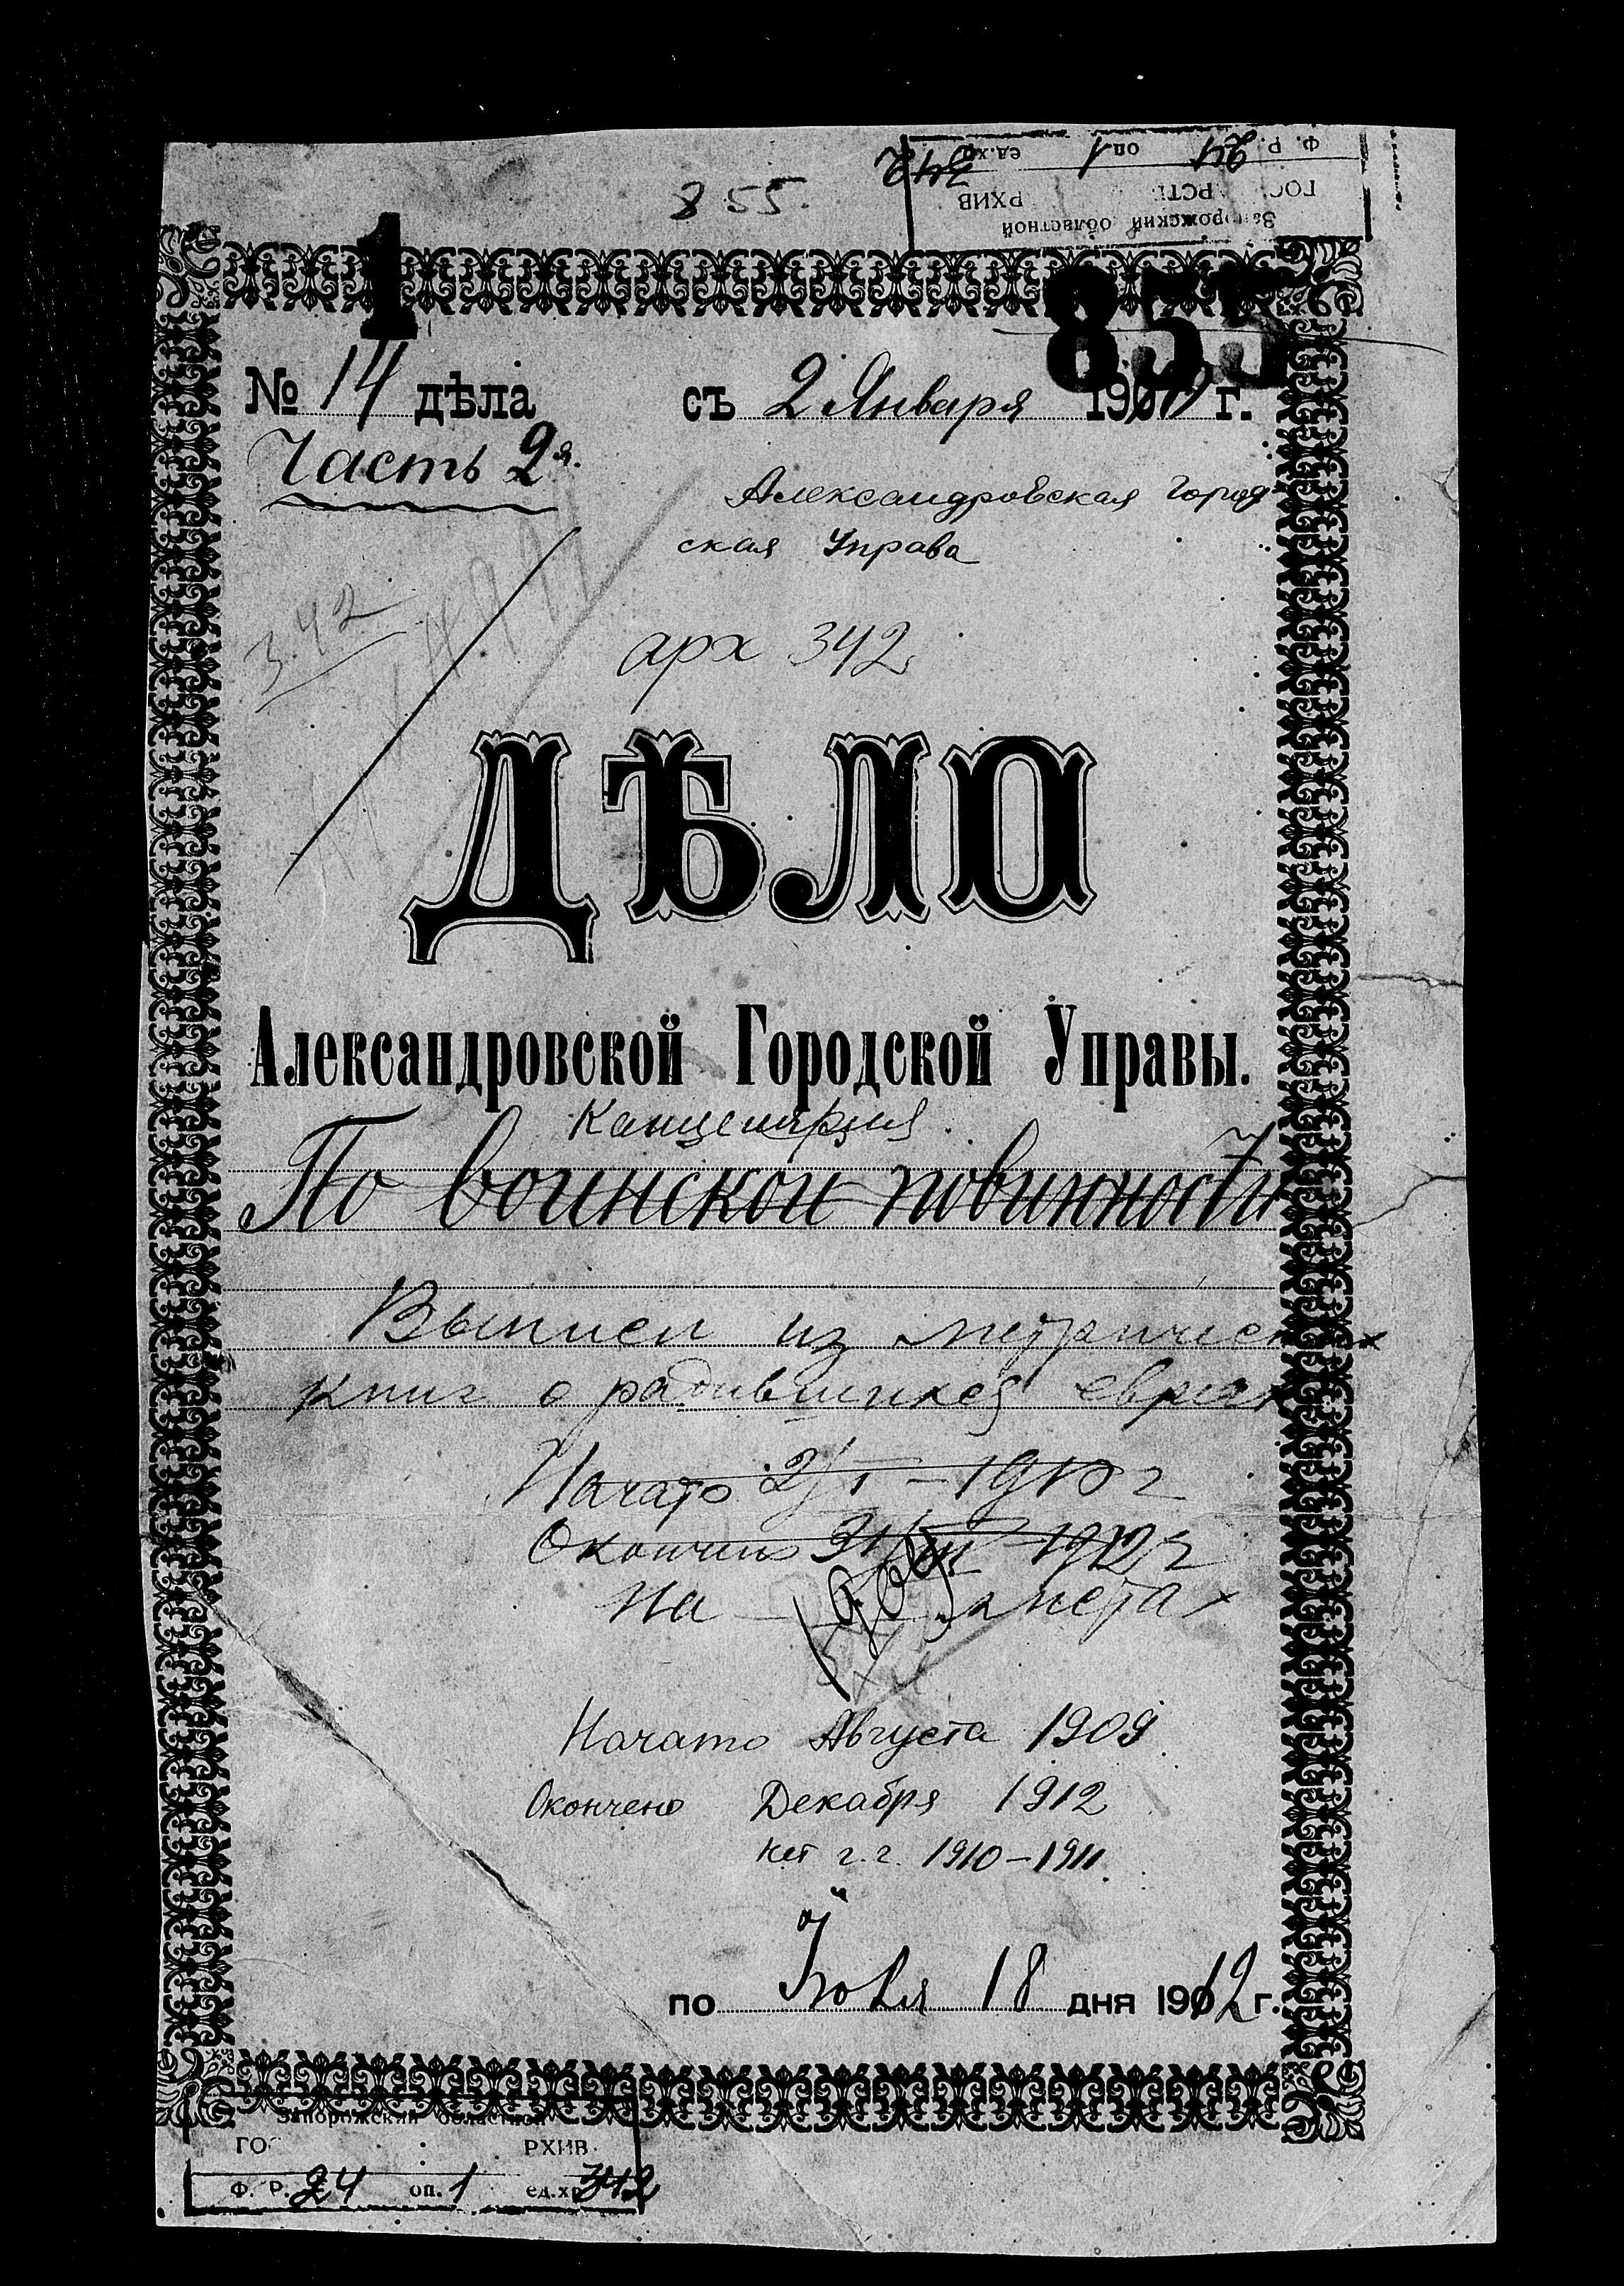 855.
Ф. Р. 24 оп. 1 ед.хр. 342
РХИВ
Запорожский областной
1
855
№ 14 дѣла съ 2 Января 1910 г.
Часть 2я.
Александровская город
ская Управа
342
арх 342
ДѢЛО
Александровской Городской Управы.
Канцелярия.
По воинской повинности
Выписи из метрических
книг о родившихся евреях
Начато 2/I – 1910 г
Окончено 31/XII 1912 г
На листах
Начато Августа 1909
Окончено Декабря 1912
нет г.г. 1910–1911.
по Іюля 18 дня 1912 г.
Запорожский областной
РХИВ
Ф. Р. 24 оп. 1 ед.хр. 342